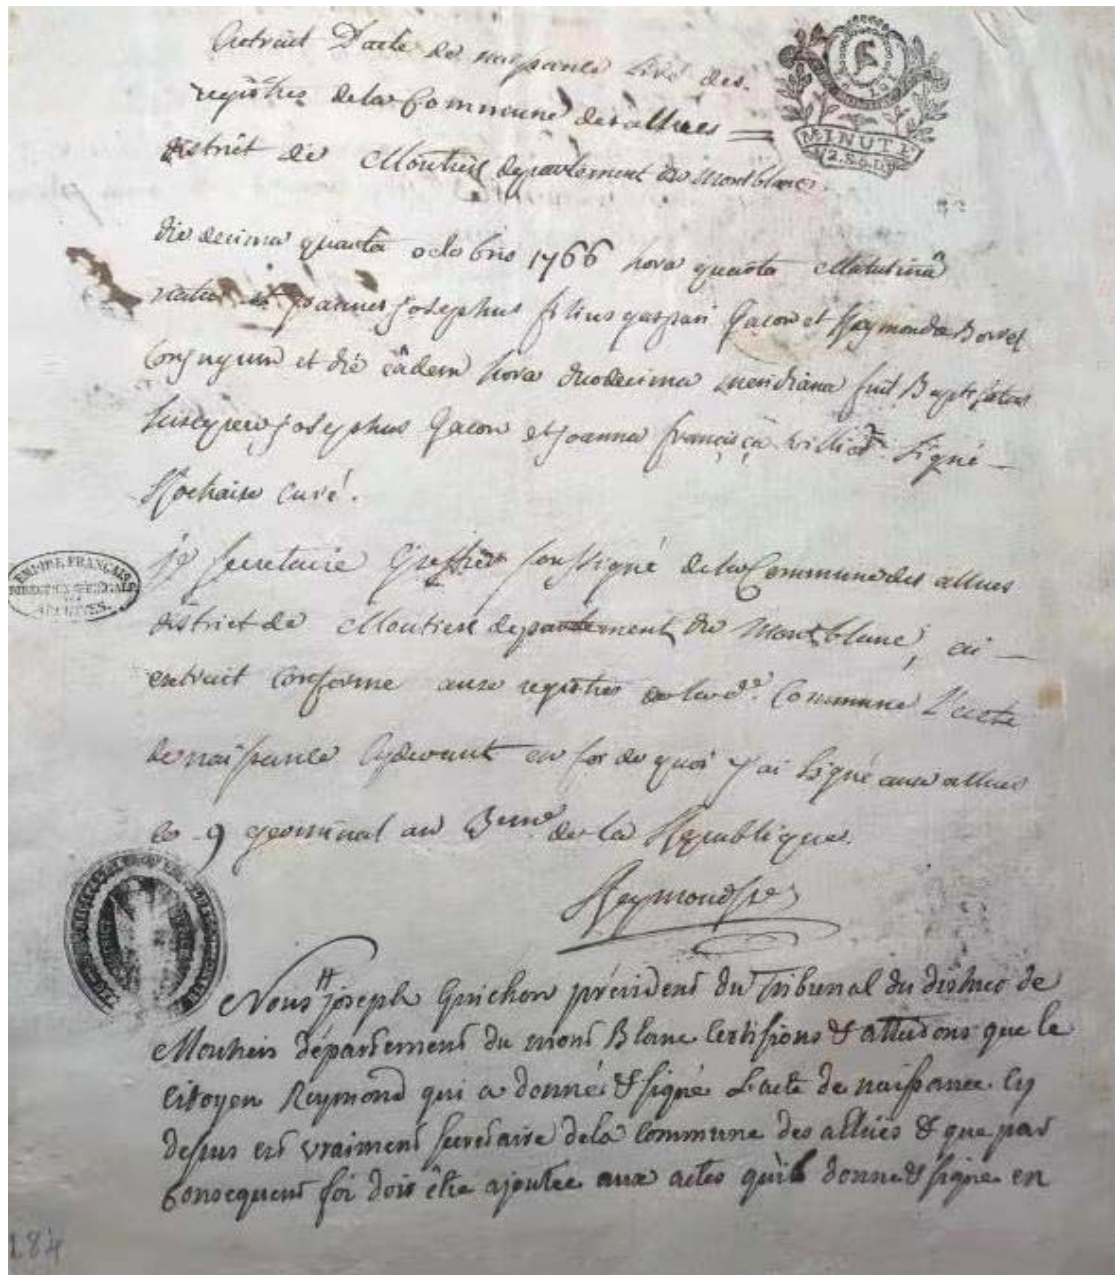 Extrait D'acte de naissance tiré des
registres de la Commune des allues
district de Moutiers departement du Montblanc
MINUTE
die decima quarta octobris 1766 hora quarta Matutina
natus est Joannes josephus filius gaspari Gacon et Reymonda Borrel
Conjugum et die eadem hora duodecima meridiana fuit Baptisatus
Susceper. josephus Gacon et joanna francisca Signé
Rochaix curé.
EMPIRE FRANÇAIS
DIRECTION GÉNÉRALE
DES
ARCHIVES.
je secretaire Greffier soussigné de la Commune des allues
district de Moutiers departement du Montblanc, ai
extrait conforme aux registres de lade. Commune L'acte
de naissance Cydevant en foi de quoi j'ai signé aux allues
le 9 germinal an 3eme de la Republique.
Reymond sre
Nous joseph Guichon président du Tribunal du district de
Moutiers département du mont Blanc Certifions & attestons que le
Citoyen Reymond qui a donné & signé L'acte de naissance Cy
dessus est vraiment secretaire de la commune des allues & que par
Consequent foi doit être ajoutée aux actes qu'il donne & signe en
184